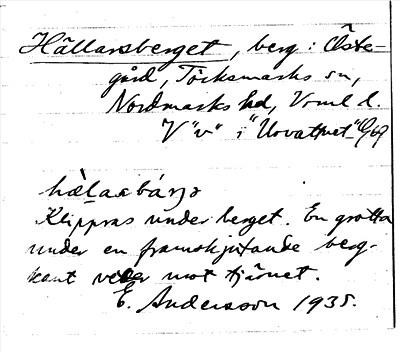 Hällarsberget, berg i Öste-
gård, Töcksmarks sn,
Nordmarks hd, Vrml l.
V "v" i "Uovattnet" G/69
hæ̀ḷaabárjə
Klippras under berget. En grotta
under en framskjutande berg-
kant mot tjärnet.
E. Andersson 1935.